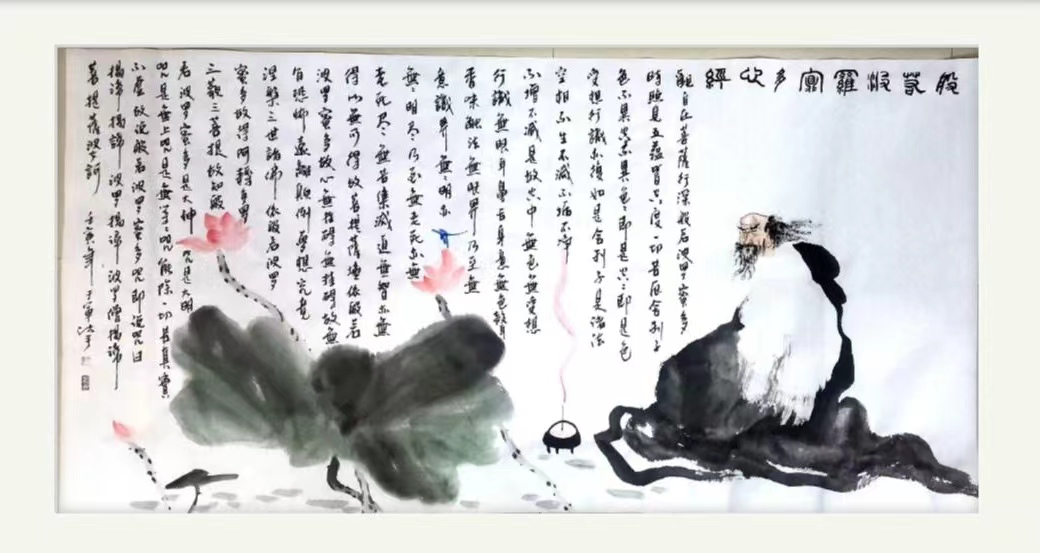 般若波羅蜜多心經
觀自在菩薩行深般若波罗蜜多
時照見五蘊皆空度一切苦厄舍利子
色不異空空不異色色即是空空即是色
受想行識亦復如是舍利子是諸法
空相不生不滅不垢不淨
不增不減是故空中無色無受想
行識無眼耳鼻舌身意無色聲
香味触法無眼界乃至無
意識界無無明亦
無無明尽乃至無老死亦無
老死尽無苦集滅道無智亦無
得以無所得故菩提薩埵依般若
波罗蜜多故心無挂碍無挂碍故無
有恐怖遠離顛倒夢想究竟
涅槃三世諸佛依般若波罗
蜜多故得阿耨多罗
三藐三菩提故知般
若波罗蜜多是大神咒是大明
咒是無上咒是無等等咒能除一切苦真實
不虛故說般若波罗蜜多咒即說咒曰
揭諦揭諦波罗揭諦波罗僧揭諦
菩提薩婆訶 壬寅年